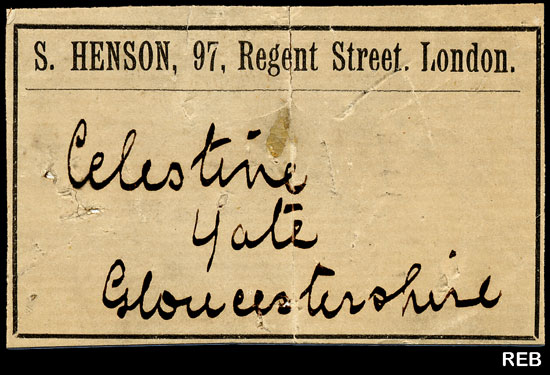 S. HENSON, 97, Regent Street. London.
Celestine
Yate
Gloucestershire
REB